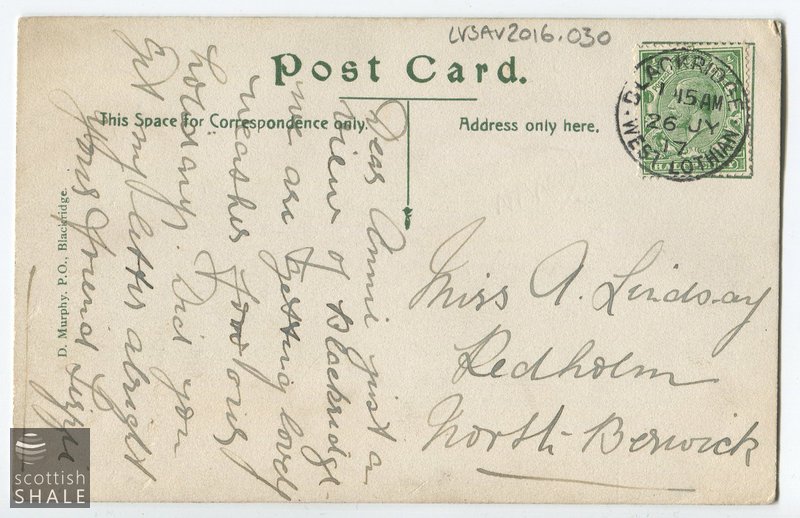 LVSAV2016.030
Post Card.
This Space for Correspondence only.
Address only here.
BLACKRIDGE
1 45 AM
26 JY
17
WEST LOTHIAN
Dear Annie just a
view of Blackridge
we are getting lovely
weather for our
holidays. Did you
get my letter alright
Your friend Lizzie
Miss A. Lindsay
Redholm
North-Berwick
D. Murphy, P.O., Blackridge.
scottish
SHALE